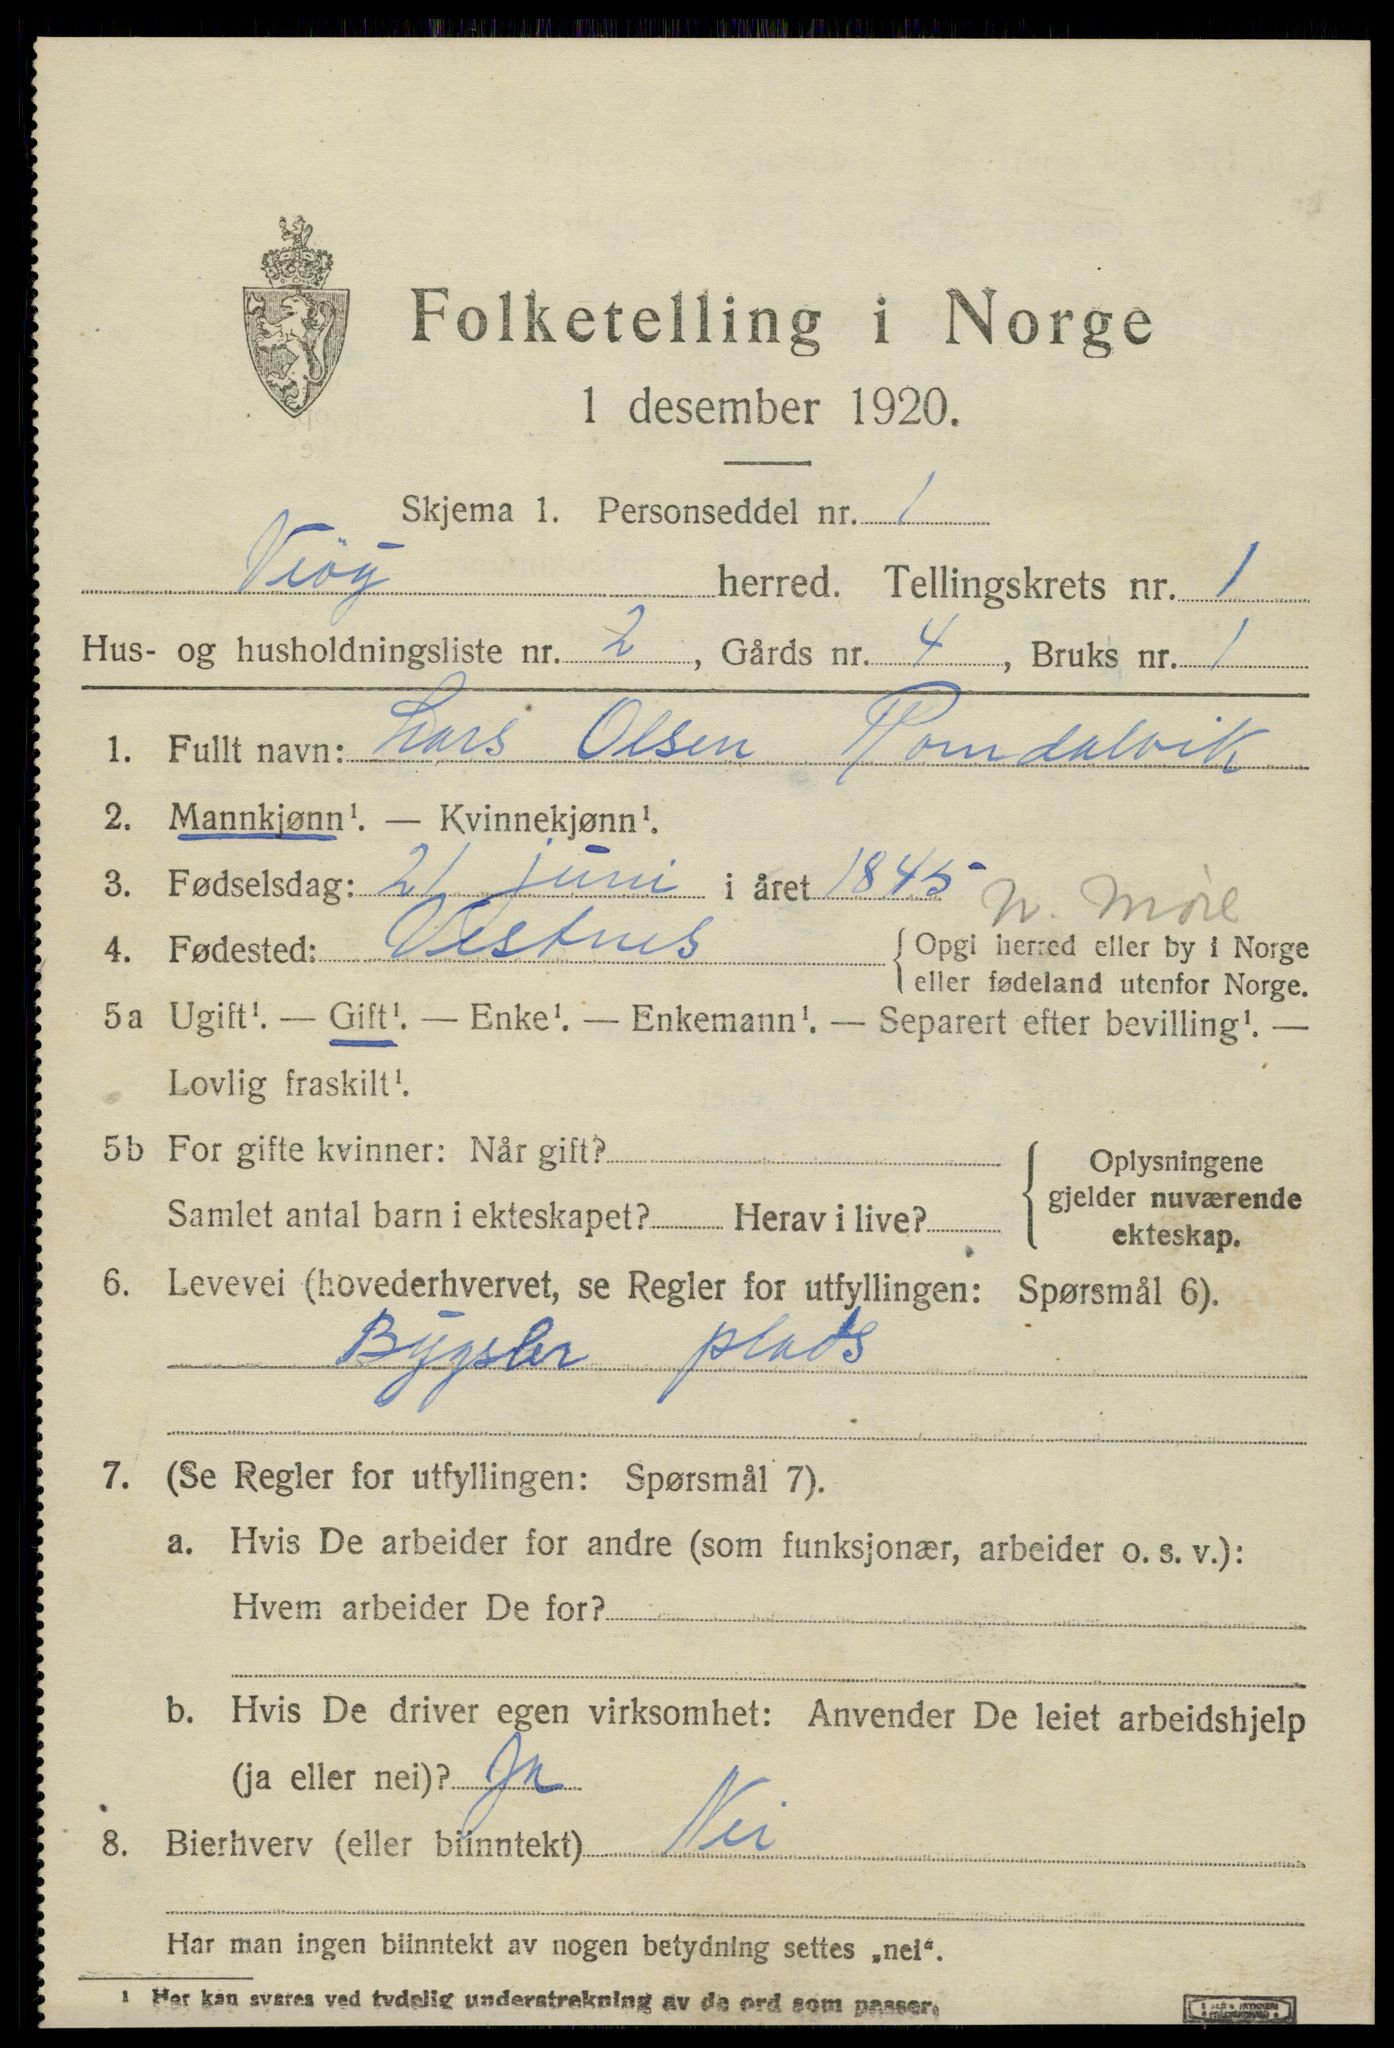 Folketelling i Norge
1 desember 1920.
Skjema 1. Personseddel nr. 1
Veøy herred. Tellingskrets nr. 1
Hus- og husholdningsliste nr. 2, Gårds nr. 4, Bruks nr. 1
1. Fullt navn: Lars Olsen Romdalvik
2. Mannkjønn¹. — Kvinnekjønn¹.
3. Fødselsdag: 21 juni i året 1845
N. Møre
4. Fødested: Vestnes { Opgi herred eller by i Norge
eller fødeland utenfor Norge.
5a Ugift¹. — Gift¹. — Enke¹. — Enkemann¹. — Separert efter bevilling¹. —
Lovlig fraskilt¹.
5b For gifte kvinner: Når gift?
Samlet antal barn i ekteskapet? Herav i live?
{ Oplysningene
gjelder nuværende
ekteskap.
6. Levevei (hovederhvervet, se Regler for utfyllingen: Spørsmål 6).
Bygsler plads
7. (Se Regler for utfyllingen: Spørsmål 7).
a. Hvis De arbeider for andre (som funksjonær, arbeider o. s. v.):
Hvem arbeider De for?
b. Hvis De driver egen virksomhet: Anvender De leiet arbeidshjelp
(ja eller nei)? Ja
8. Bierhverv (eller biinntekt) Nei
Har man ingen biinntekt av nogen betydning settes „nei“.
¹ Her kan svares ved tydelig understrekning av de ord som passer.